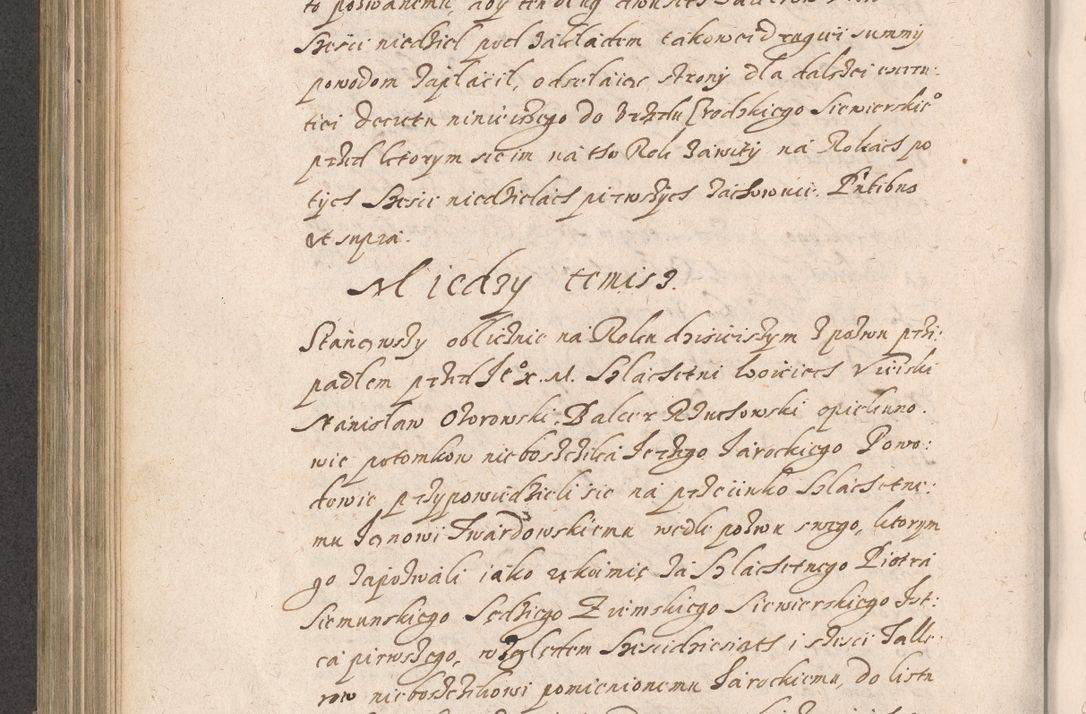 to pozwanemu, aby ten dług
Sześci niedziel pod zakładem takowei drugiei summy
powodom zapłacił, odsełaiąc strony dla dalszei exécu:
tiei decretu ninieiszego do Vrzędu Grodzkiego Siewierskie°
przed ktorym sie im na tho Rok zawity na Rokach po
tych Sześci niedzielach pierwszych zachownie. Pńtibus
vt supra.
Miedzy temisz.
Stanąwszy oblicznie na Roku dzisieiszym z pozwu przi:
padłem przed Je° X. M. Szlachetni Woiciech Vieiski
Stanisław Ożorowski, Balcer Rzuchowski opiekuno.
wie potomkow nieboszczika Jerzego Jarockiego Powo:
dowie przypowiedzieli sie na przeciwko Szlachetne:
mu Janowi Twardowskiemu wedle pozwu swego, ktorym
go zapozwali iako rękoimię za Szlachetnego Piotra
Siemunskiego Sędziego Ziemskiego Siewierskiego Ist:
ca pirwszego, względem Sześcidziesiąth i sześci Talle:
row nieboszczikowi pomienionemu Jarockiemu, do listu